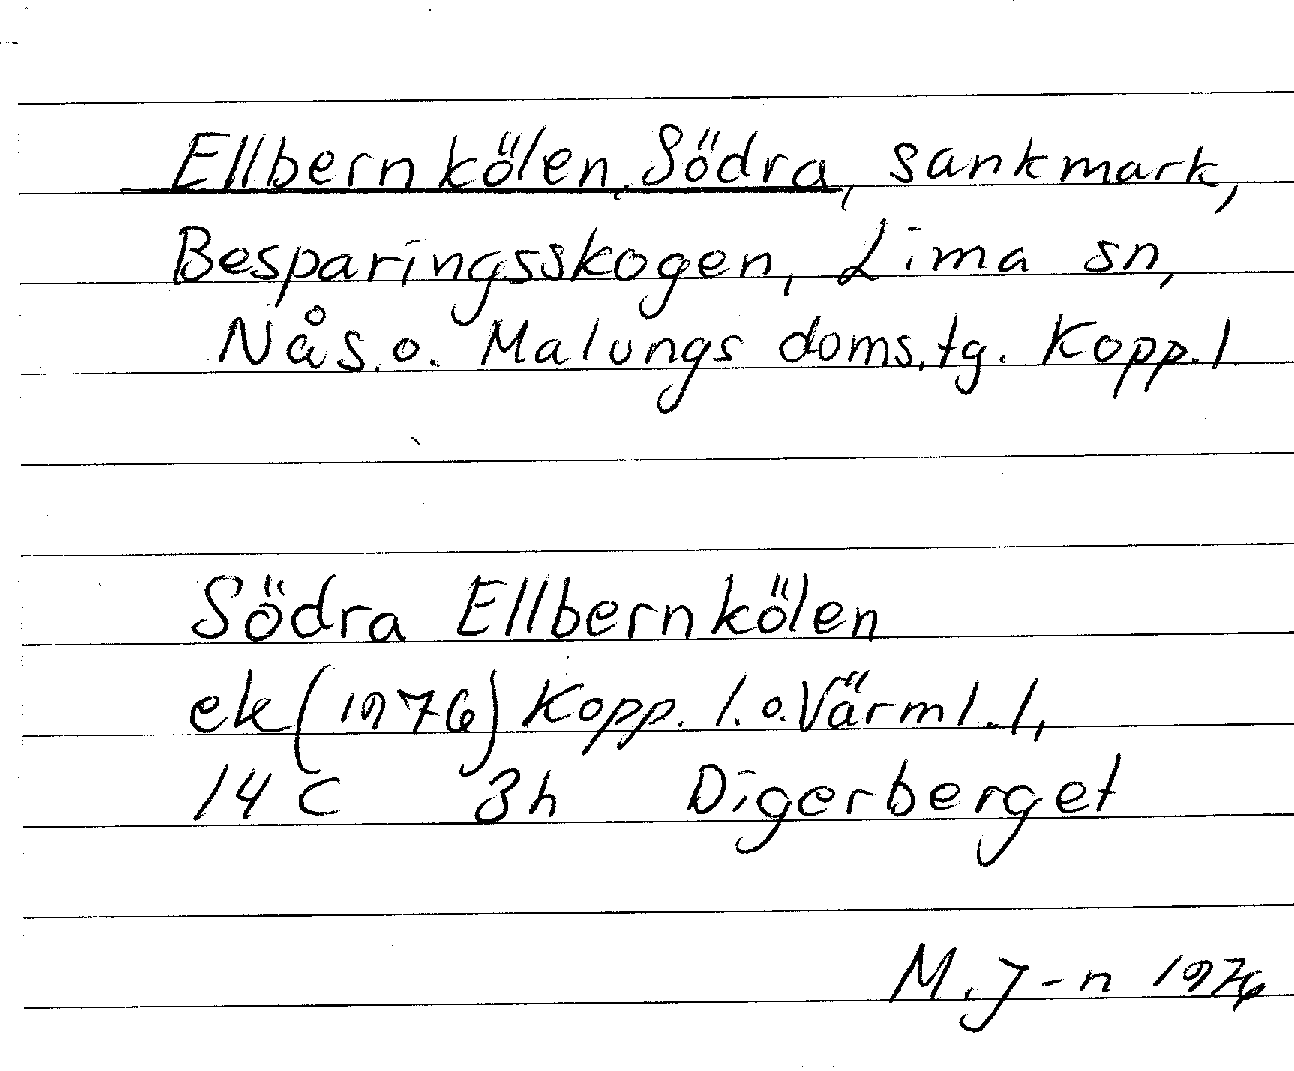 Ellbernkölen, Södra, sankmark,
Besparingsskogen, Lima sn,
Nås.o. Malungs doms.tg. Kopp.l
Södra Ellbernkölen
ek(1976) Kopp. l. o. Värml. l,
14 C 3h Digerberget
M.J-n 1976